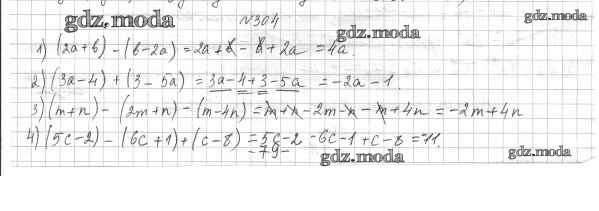 gdz.moda
№304
gdz.moda
1) (2a+b) - (b-2a) = 2a+b - b + 2a = 4a.
gdz.moda
2) (3a-4) + (3 - 5a) = 3a-4+3-5a = -2a - 1.
3) (m+n) - (2m+n) - (m-4n) = m+n-2m-n-m+4n = -2m+4n
4) (5c-2) - (6c+1) + (c-8) = 5c-2 -6c-1+c-8 = -11.
gdz.moda
gdz.moda